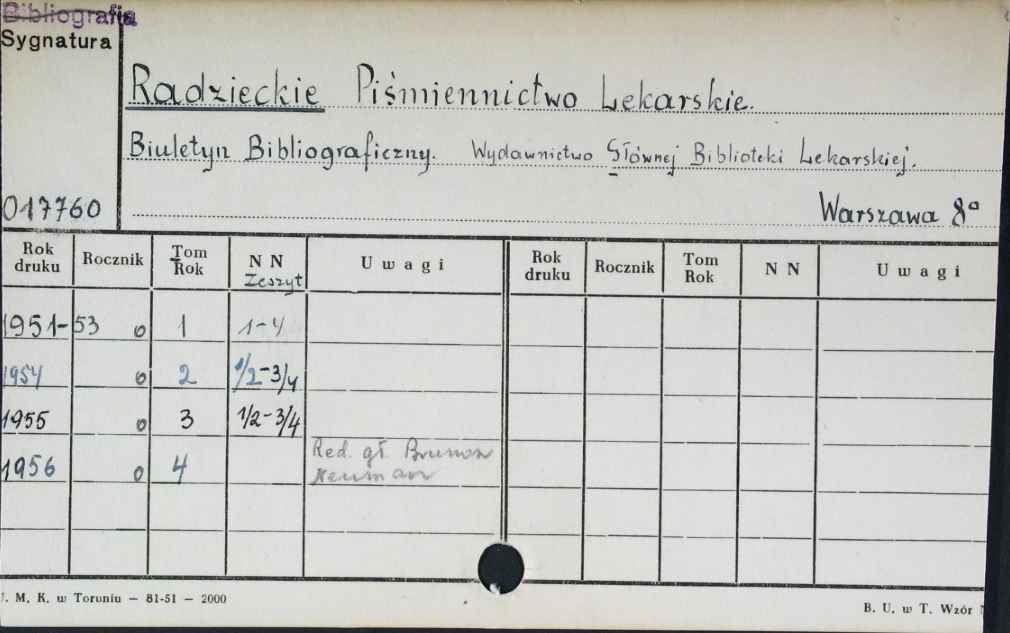 Bibliografia
Sygnatura
Radzieckie Piśmiennictwo Lekarskie.
Biuletyn Bibliograficzny. Wydawnictwo Głównej Biblioteki Lekarskiej.
017760
Warszawa 8°
Rok druku Rocznik Tom Rok NN Zeszyt Uwagi Rok druku Rocznik Tom Rok NN Uwagi
1951-53 o 1 1-4
1954 o 2 1/2-3/4
1955 o 3 1/2-3/4
1956 o 4 Red. gł. Brunon
Neuman
. M. K. w Toruniu — 81-51 — 2000
B. U. w T. Wzór